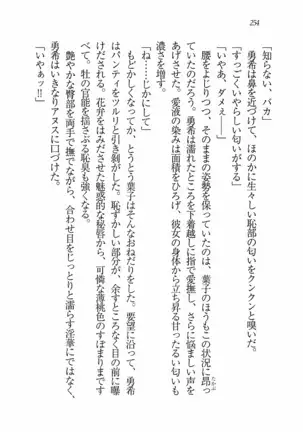 254
「知らない、バカ」
勇希は鼻を近づけて、ほのかに生々しい恥部の匂いをクンクンと嗅いだ。
「すっごくいやらしい匂いがする」
「いやあ、ダメぇ――」
腰をよじりつつ、そのままの姿勢を保っていたのは、葉子のほうもこの状況に昂っ
ていたのだろう。勇希は濡れたところを下着越しに指で愛撫し、さらに悩ましい声を
あげさせた。愛液の染みは面積をひろげ、彼女の身体から立ち昇る甘ったるい匂いも
濃さを増す。
「ね……じかにして」
もどかしくなってか、とうとう葉子はそんなおねだりをした。要望に沿って、勇希
はパンティをツルリと引き剝がした。恥ずかしい部分が、余すところなく目の前に曝
けだされる。花弁をはみださせた魅惑的な秘唇から、可憐な薄桃色のすぼまりまです
べて。牡の官能を揺さぶる恥臭も強くなる。
艶やかな臀部を両手で撫でながら、合わせ目をじっとりと濡らす淫華にではなく、
勇希はいきなりアヌスに口づけた。
「いやぁッ!!」